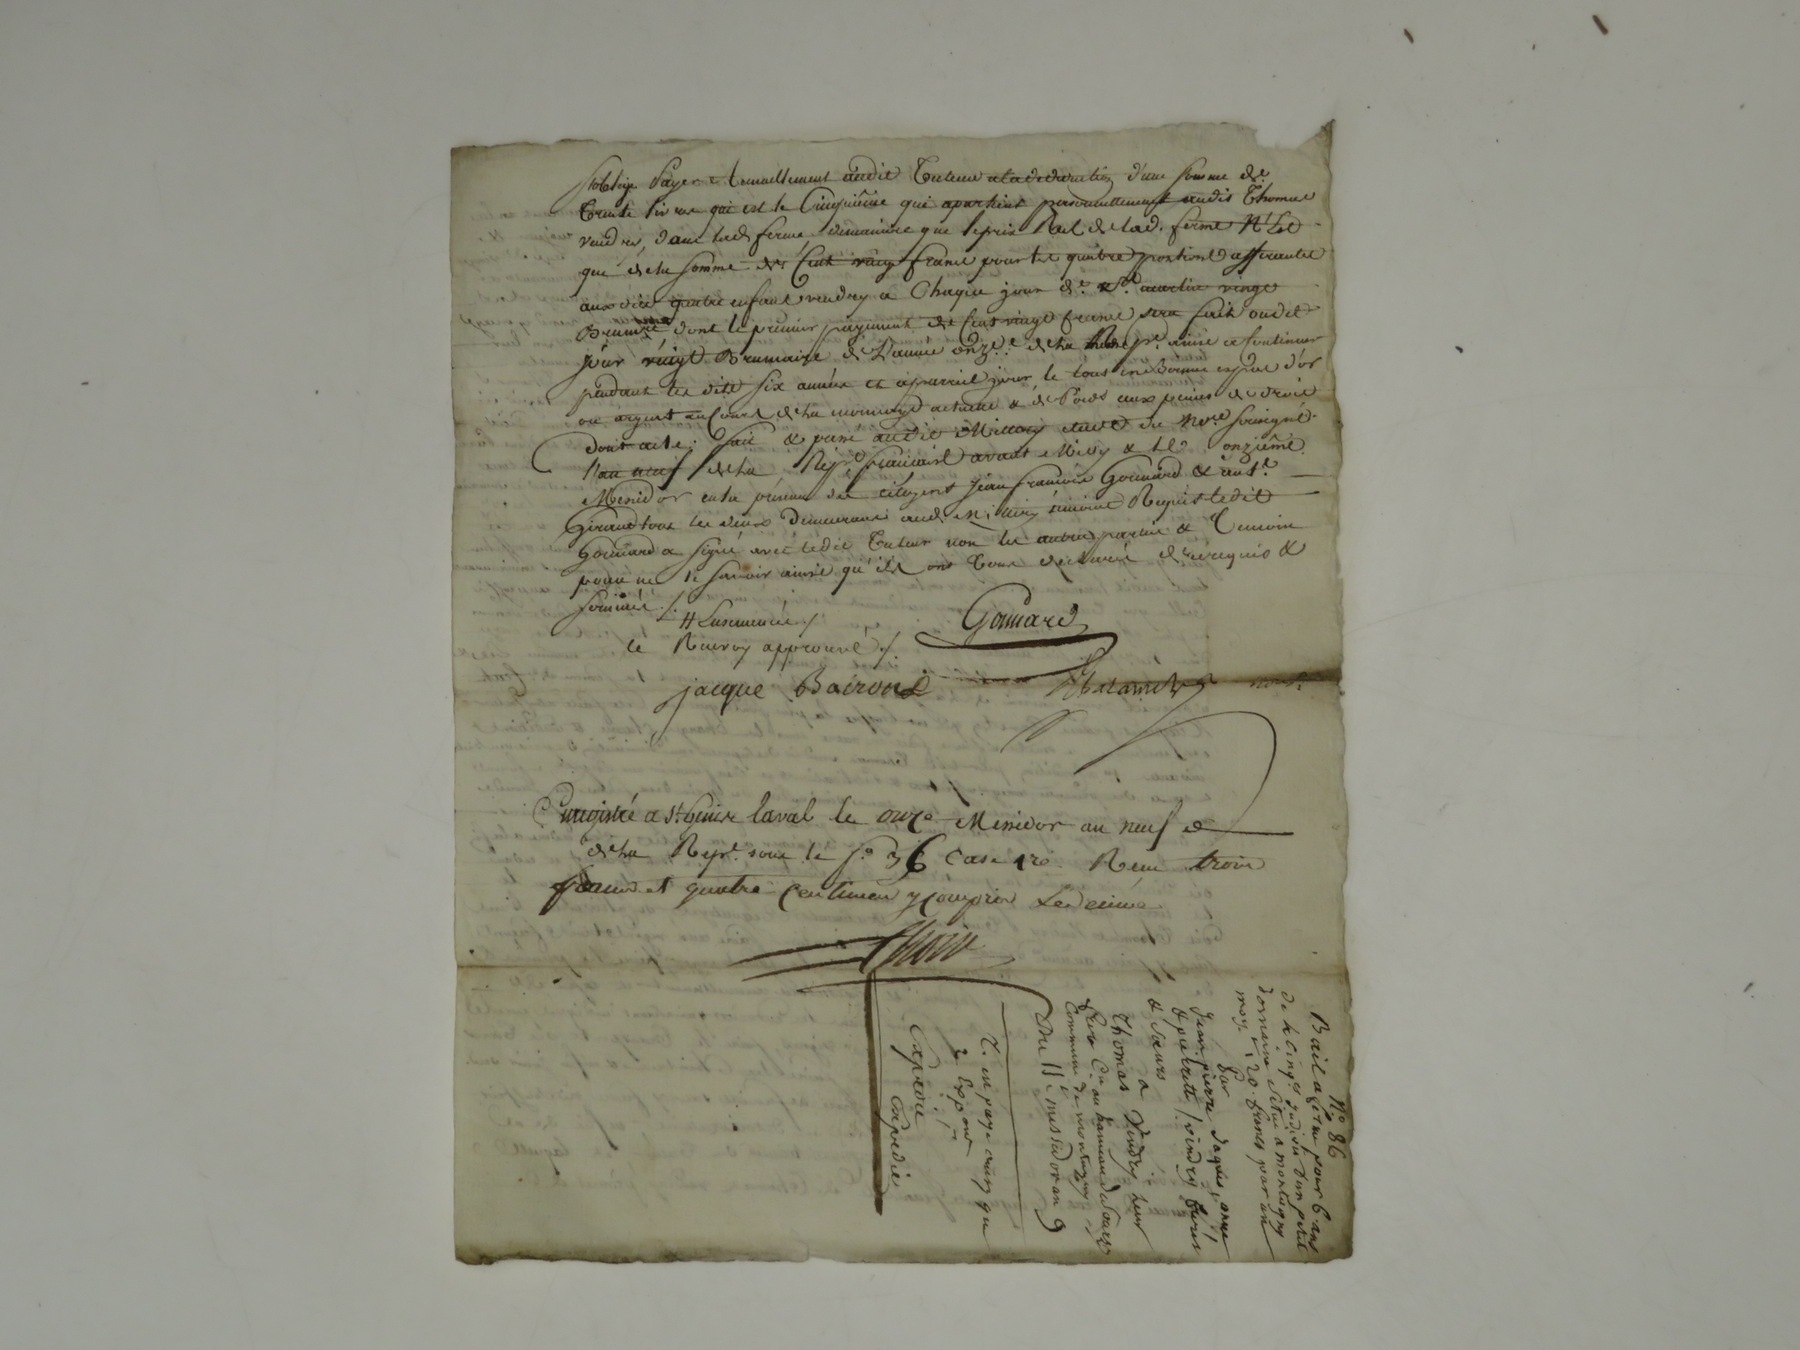 s'oblige payer annuellement audit Tuteur a la deduction d'une somme de
Trente livres qui est le Cinquième qui apartient personnellement audit Thomas
vendry, dans lad. ferme demaniere que le prix Reel de lad. ferme N'Est
que de la somme de Cent vingt francs pour les quatre portions afferantes
auxdits quatre enfants vendry a Chaque jour de St. martin vingt
Brumaire dont le premier payement de Cent vingt francs sera fait audit
jour vingt Brumaire de L'année onze de la Rep. ainsi a Continuer
pendant les dites six années et a pareil jour, le tout en Bonne espece d'or
ou argent au Cours de la monnoye actuelle & de Poids aux peines de droit
dont acte; fait & passé audit Millery etude du No.re soussigné
l'an neuf de la Rep.e francaise avant Midy & le onzième
Messidor en la présence des citoyens Jean francois Gonnard & ant.e
Giraud tous les deux Demeurant aud. Millery temoins Requis ledit
Gonnard a signé avec ledit Tuteur non les autres parties & Temoin
pour ne le savoir ainsi qu'ils ont Tous déclaré de ce requis &
sommés ./.
le Renvoy approuvé ./.
Gonnard
jacque Bairond
not.re
Enregistré a St. Genis laval le onze Messidor an neuf
de la Rep.e sous le f.o 36 Case 1re Reçu trois
francs et quatre Centimes y compris Le decime
N.o 86
Bail a ferme pour 6 ans
de le 5ing.e indivis d'un petit
domaine situé a montagny
moy. 120 francs par an
Par
Jean pierre Jaques, anne
& pierrette vindry freres
& sœurs
a
Thomas Vindry leur
frere Cu. au hameau du
Commune de montagny
Du 11 messidor an 9
Expedié
expedié